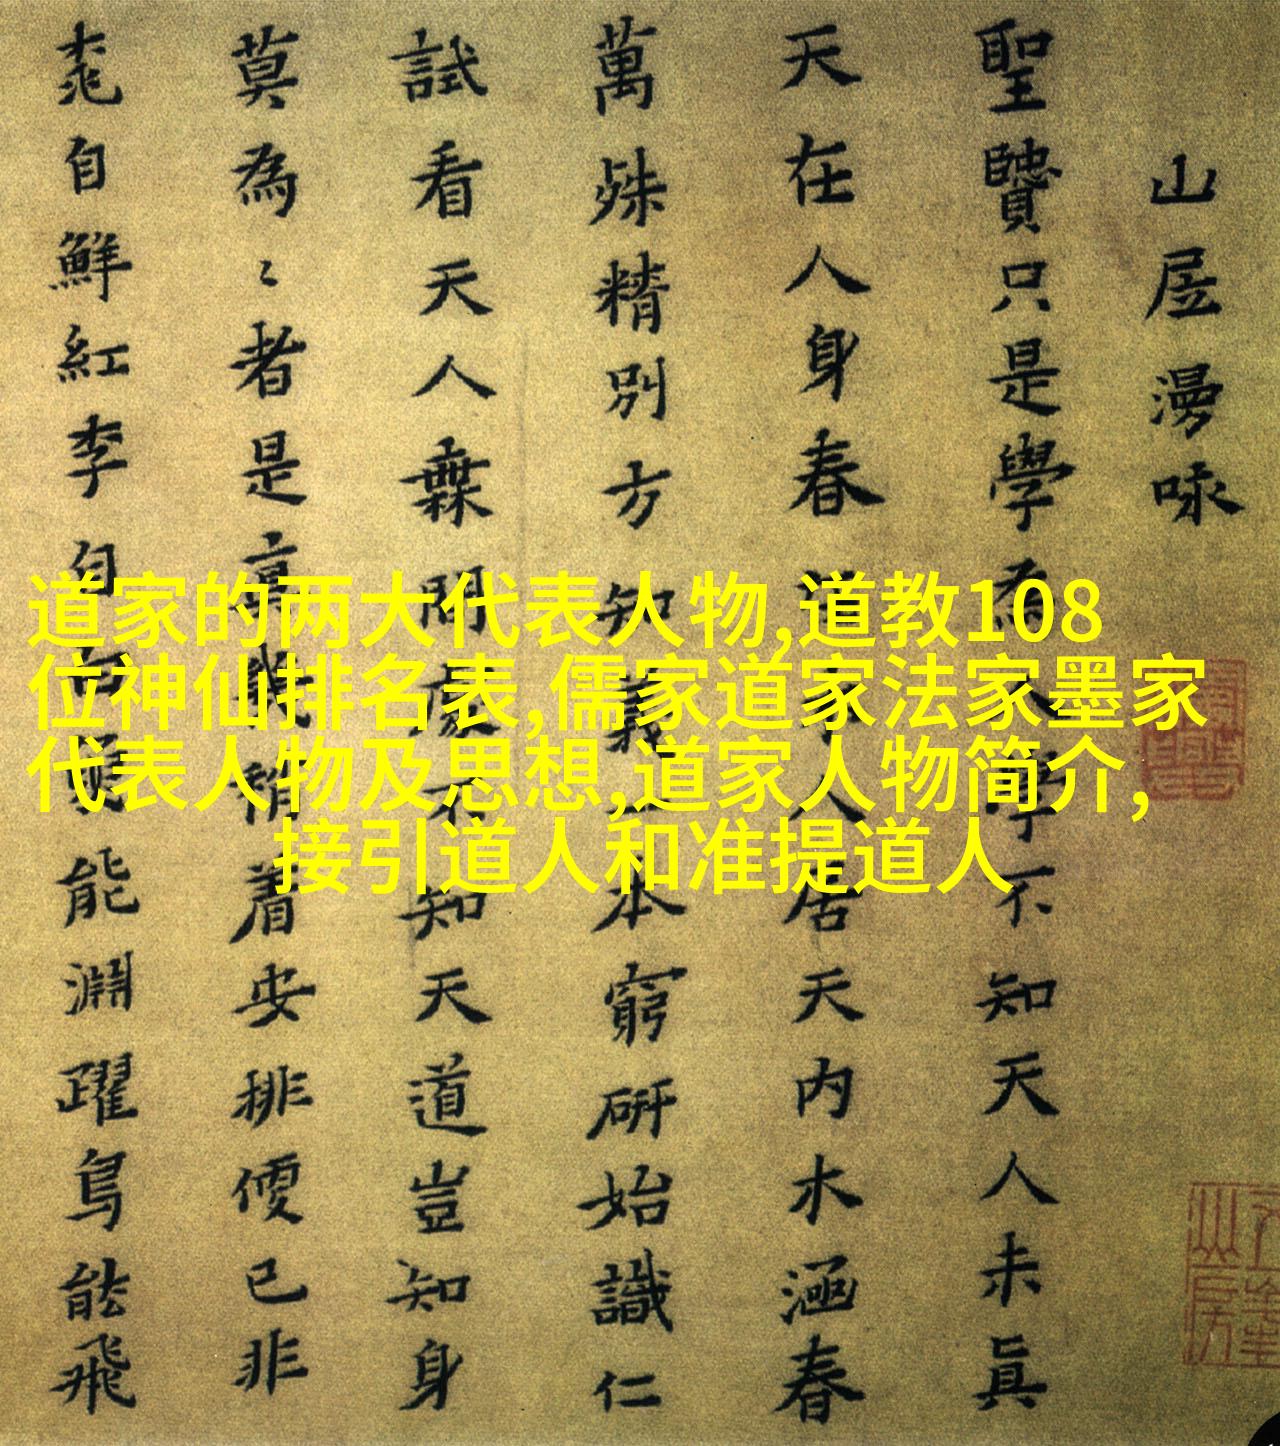 山居漫咏
聖贒只是學為人學不知天人未真
天在人身春人居天内水涵春
萬殊精别方知義一本窮研始識仁
試看天人無間處不知天道豈知身
莫為〻者是真機稍着安排便已非
桃自鮮紅李自白魚能淵躍鳥能飛
道家的两大代表人物,道教108
位神仙排名表,儒家道家法家墨家
代表人物及思想,道家人物简介,
接引道人和准提道人